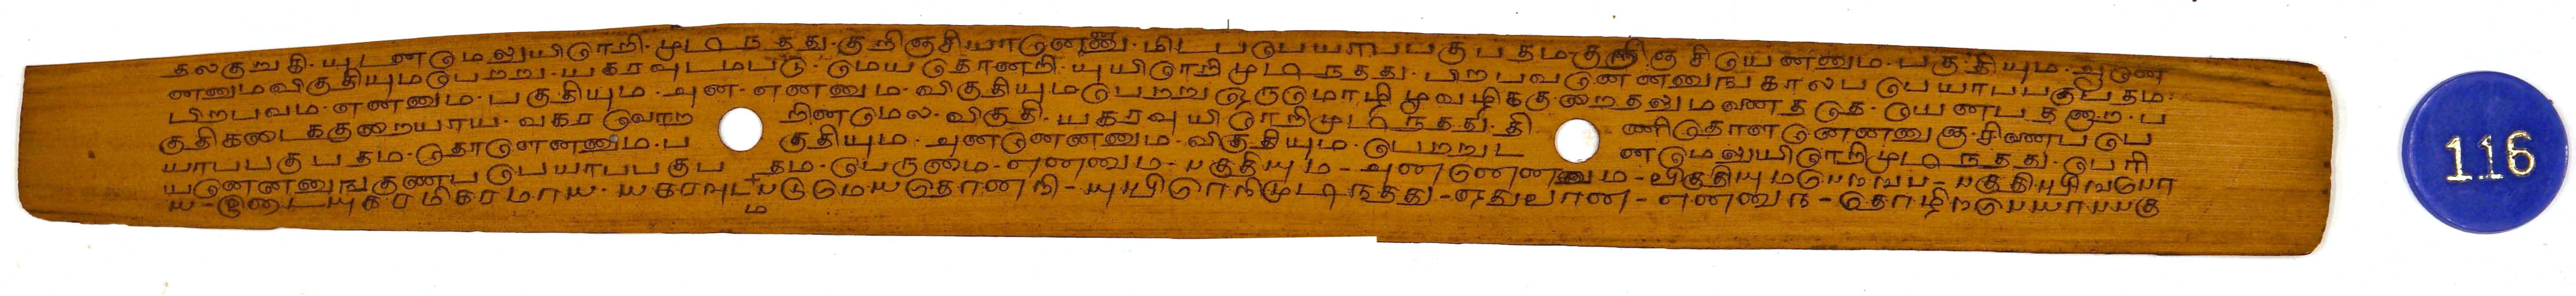 தலகுறுதி. யுடனமெலுயிரொறி. முடிநதது. குறிஞசியாடுனனு. மிடபபெயரபபகுபதம. குறிஞசியெனனும. பகுதியும. அன
னனுமவிகுதியுமபெறறு. யகரவுடமபடு. மெயதொனறி. யுயிரொறிமுடிநதது. பிறபவனெனனுஙகாலபபெயாபபகுபதம.
பிறபவம. எனனும. பகுதியும. அன. எனனும. விகுதியுமபெறறு ஒருமொழிமூவழிககுறைதலுமவணததெ. யெனபதனுற. ப
குதிகடைககுறையாய. வகரவொற றினமெல. விகுதி. யகரவுயிரொறிமுடிநதது. தி ணிதொளனெனனுஞ. சினைபபெ
யாபபகுபதம. தொளெனனும. ப குதியும. அனனெனனும. விகுதியும. பெறறுட னமெலுயிரொறிமுடிநதது. பெரி
யனெனனுஙகுணபபெயாபபகுப தம. பெருமை. எனனும. பகுதியும. அனனெனனும. விகுதியுமபெறறுப. பகுதியுயிறபொ
ய. இடையுகரமிகரமாய. யகரவுடமபடுமெயதொனறி. யுயிரொறிமுடிநதது. எதுவான. எனனுந. தொழிறபெயாபபகு
116